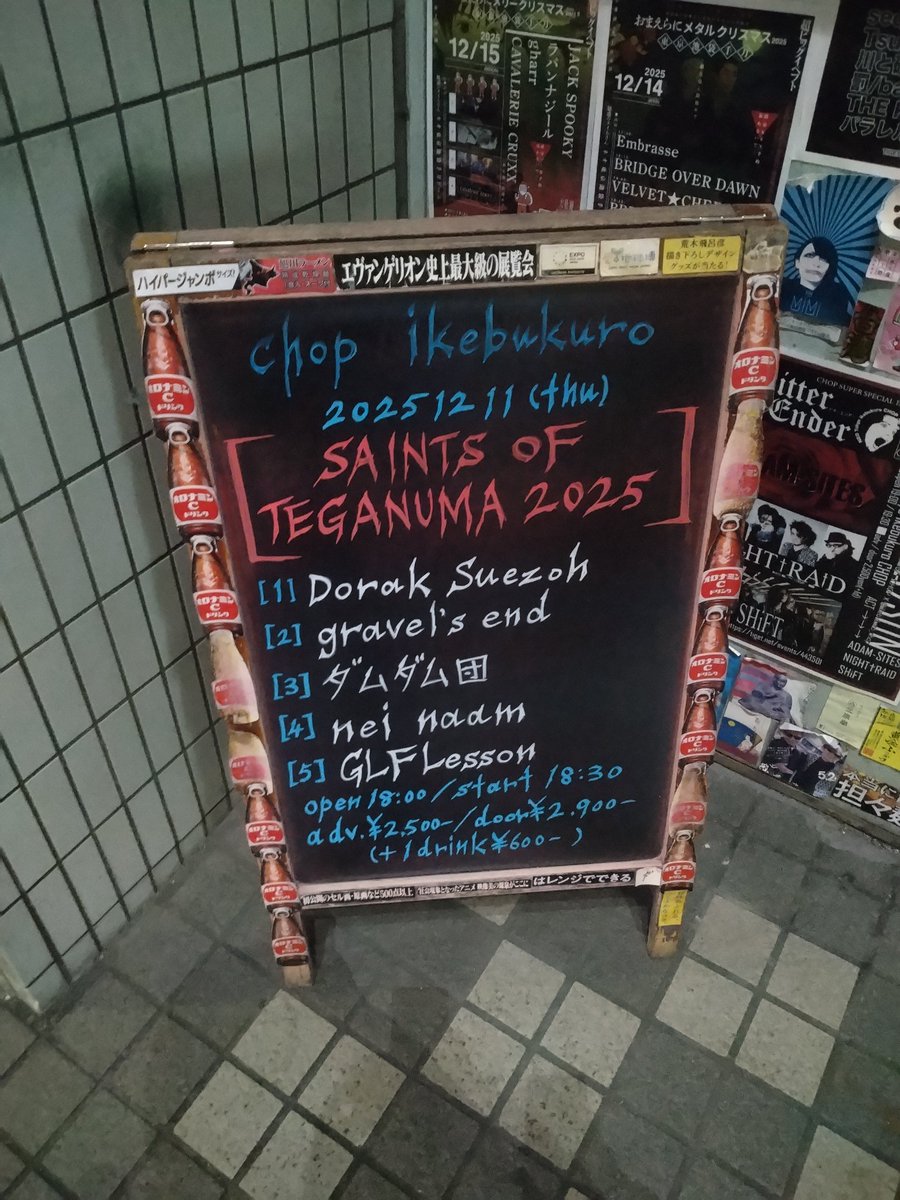 chop ikebukuro
2025 12 11 (thu)
SAINTS OF
TEGANUMA 2025
[1] Dorak Suezoh
[2] gravel's end
[3] ダムダム団
[4] nei naam
[5] GLF Lesson
open 18:00/start 18:30
adv.¥2,500-/door¥2,900-
(+1drink¥600-)
ハイパージャンボサイズ!
エヴァンゲリオン史上最大級の展覧会
EXPO
荒木飛呂彦
描き下ろしデザイン
グッズが当たる!
オロナミン
C
ドリンク
オロナミン
C
ドリンク
オロナミン
C
ドリンク
はレンジでできる
メリークリスマス
12/15
JACK SPOOKY
ラバンナジール
gharr
CAVALERIE CRUXX
おまえらにメタルクリスマス2025
2025
12/14
Embrasse
BRIDGE OVER DAWN
VELVET★
MIMI
CHOP SUPER SPECIAL
itter
Ender
SHiFT
ADAM-SITES
NIGHT†RAID
SHiFT
52
本当に